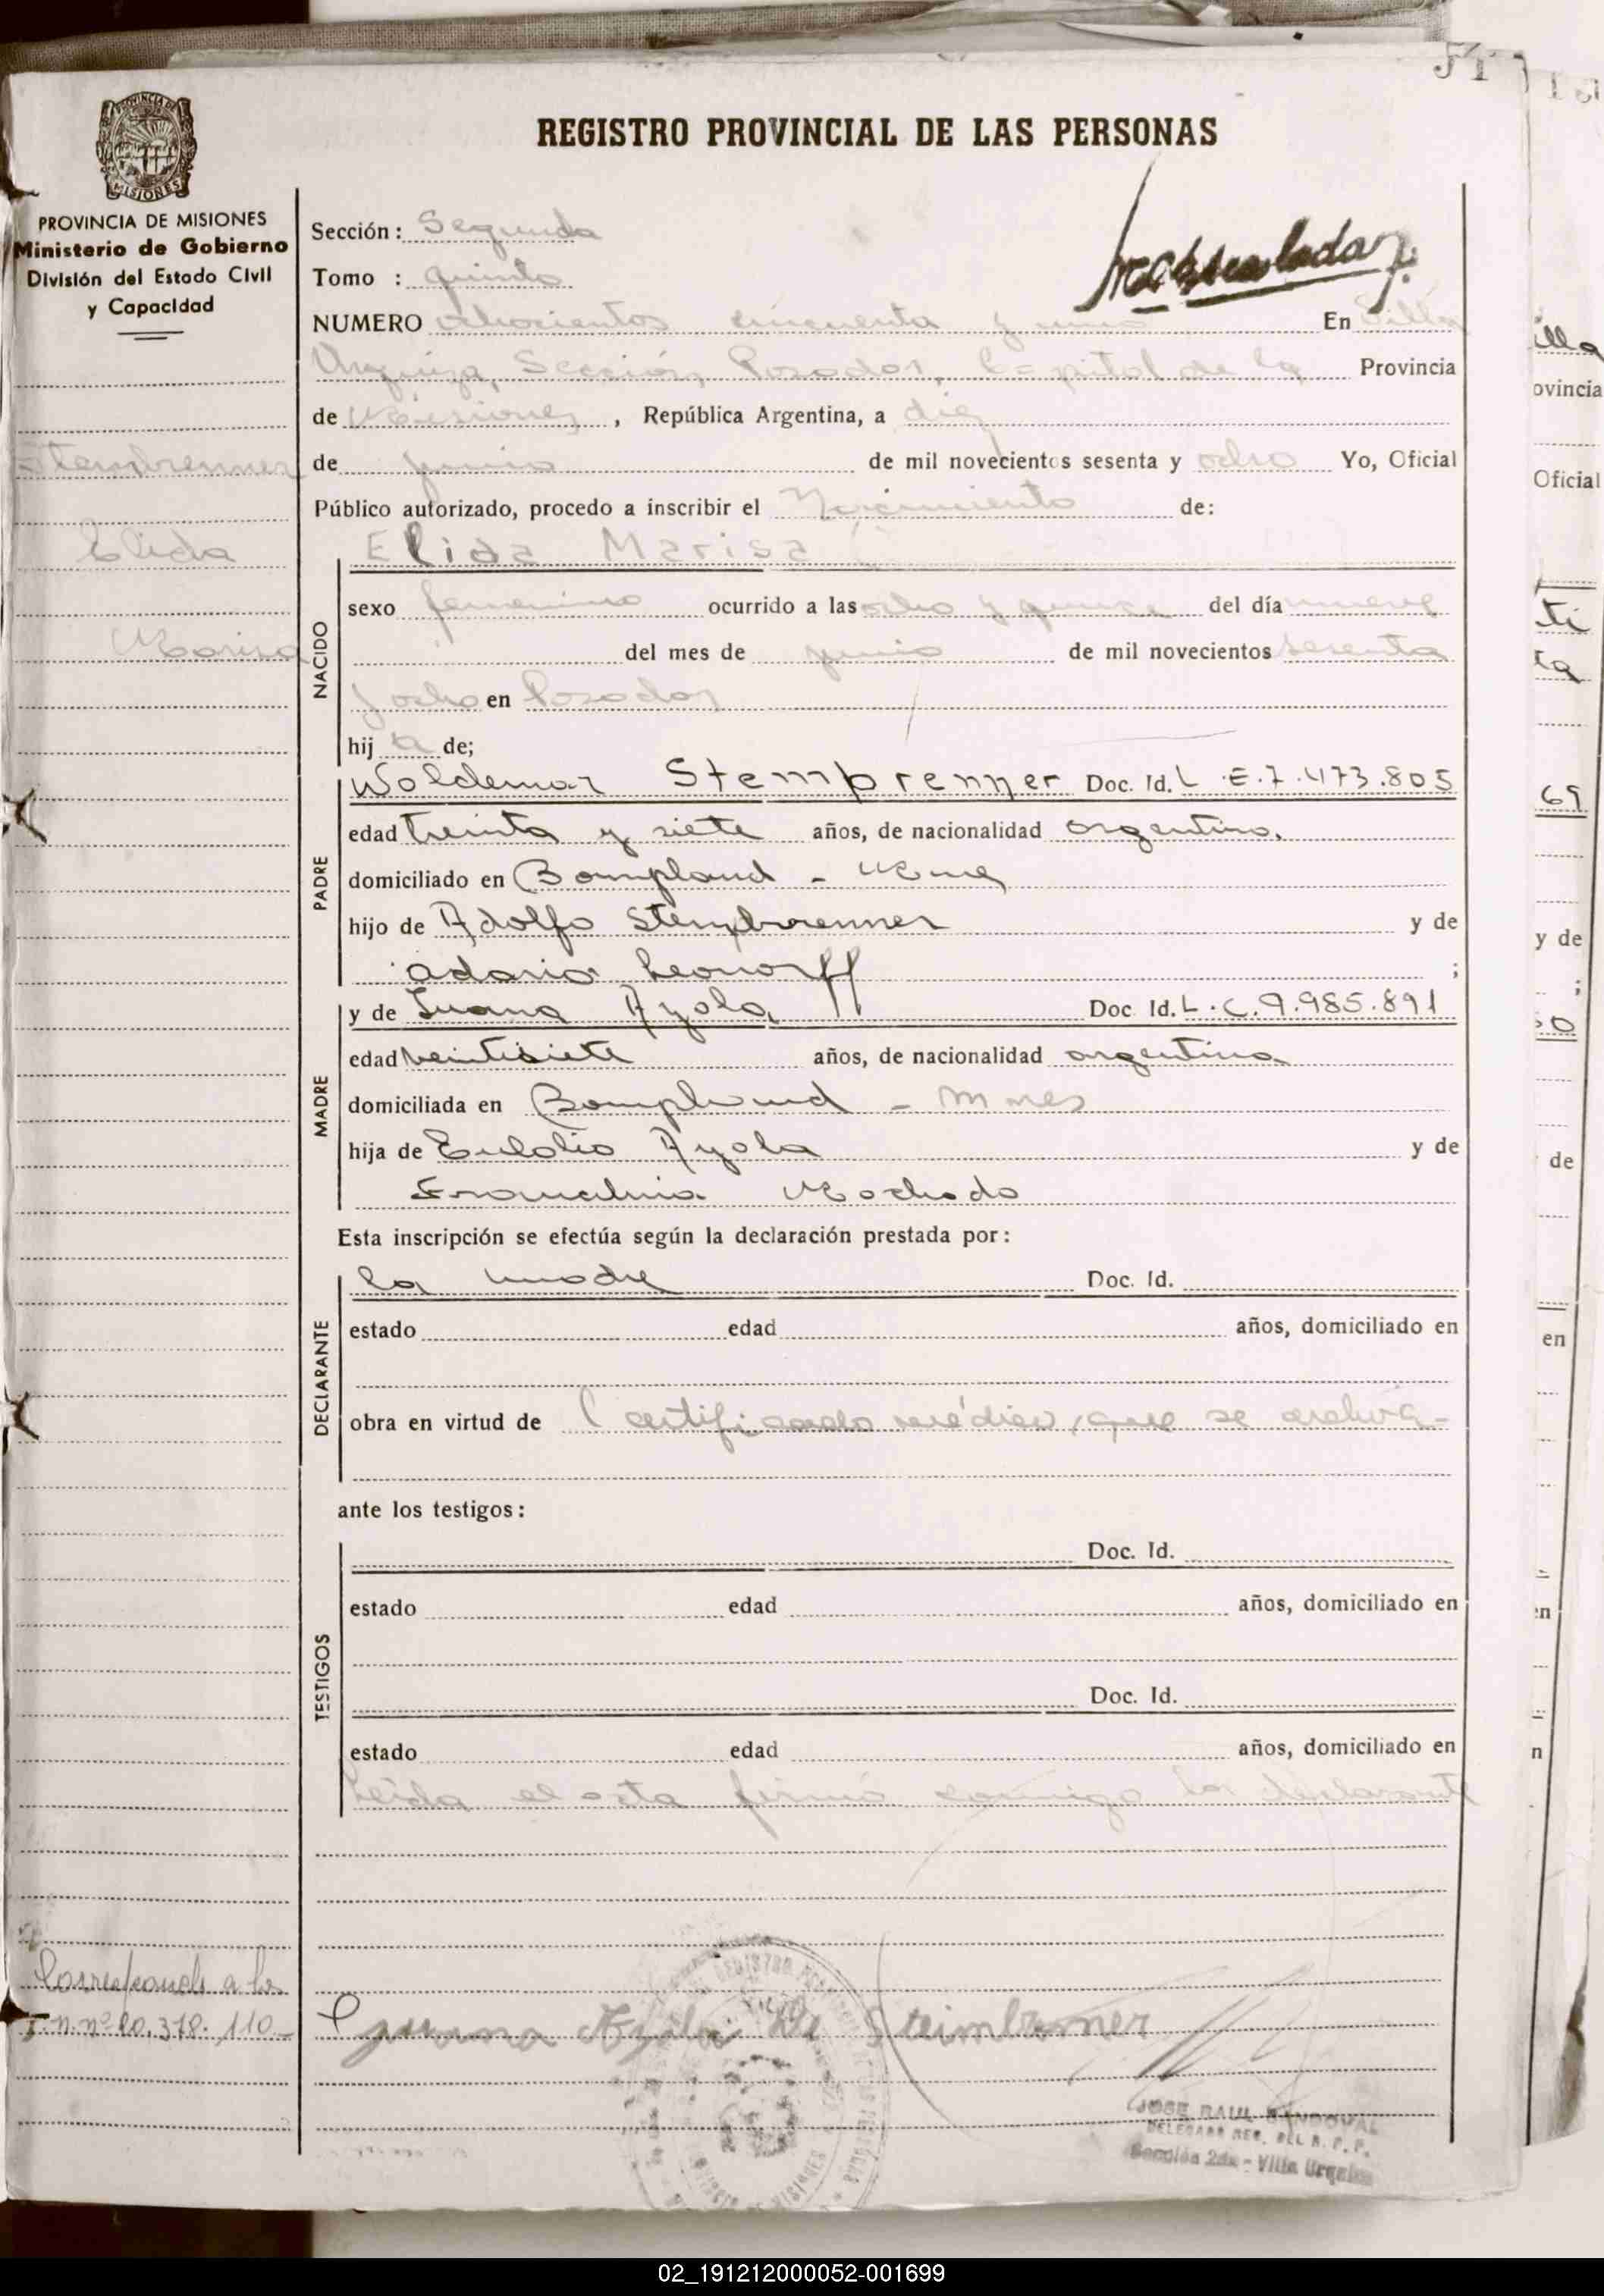 51
REGISTRO PROVINCIAL DE LAS PERSONAS
PROVINCIA DE MISIONES
Ministerio de Gobierno
División del Estado Civil
y Capacidad
Sección: Segunda
Tomo : quinto
NUMERO ochocientos cincuenta y uno En Villa
Urquiza, Sección, Posadas, Capital de la Provincia
de Misiones, República Argentina, a diez
Stembrenner
de junio de mil novecientos sesenta y ocho Yo, Oficial
Público autorizado, procedo a inscribir el Nacimiento de:
Elida
Elida Marisa
NACIDO
sexo femenino ocurrido a las ocho y quince del día nueve
Marisa
del mes de junio de mil novecientos sesenta
y ocho en Posadas
hij a de;
PADRE
Woldemar Stembrenner Doc. Id. L.E.7.473.805
edad treinta y siete años, de nacionalidad argentino.
domiciliado en Bompland - Mnes
hijo de Adolfo Stembrenner y de
adaria Leonorff ;
MADRE
y de Juana Ayala Doc Id. L.C.9.985.891
edad veintisiete años, de nacionalidad argentina
domiciliada en Bompland - Mnes
hija de Eulalio Ayala y de
Machado
Esta inscripción se efectúa según la declaración prestada por:
DECLARANTE
la madre Doc. Id.
estado edad años, domiciliado en
obra en virtud de Certificado médico, que se archiva-
ante los testigos:
TESTIGOS
Doc. Id.
estado edad años, domiciliado en
Doc. Id.
estado edad años, domiciliado en
Leida el acta firmó conmigo la declarante
Corresponde a la
I.n. nº 20.378.110-
Juana Ayala De Steimbrenner
JOSE RAUL SANDOVAL
DELEGADO REG. DEL R. P. P.
Sección 2da - Villa Urquiza
02_191212000052-001699